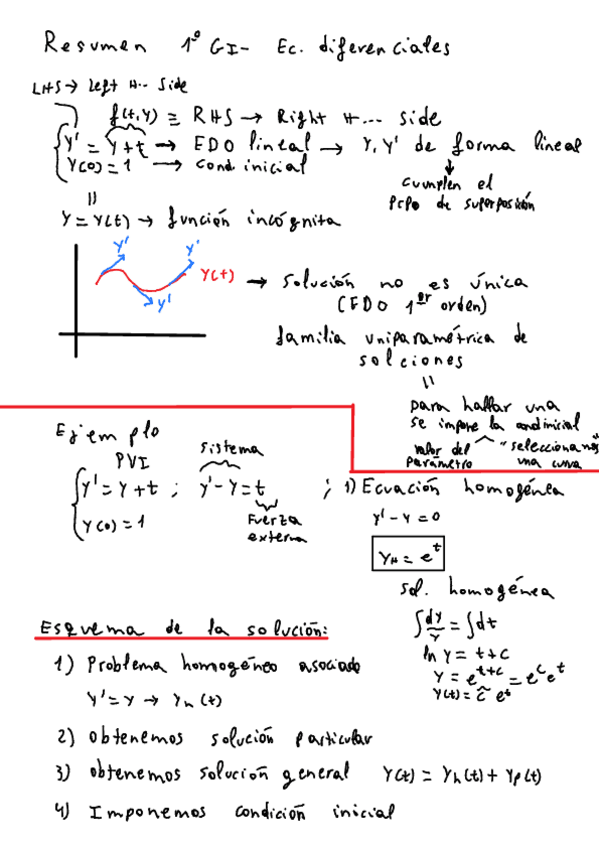 Resumen 1º GI- Ec. diferenciales
LHS → Left H... Side
f(t,y) ≡ RHS → Right H... side
y' = y+t → EDO lineal → y, y' de forma lineal
y(0)=1 → cond. inicial
cumplen el
Pcpo de superposición
y = y(t) → función incógnita
y' y'
y(t) → solución no es única
y'
(EDO 1er orden)
familia uniparamétrica de
solciones
para hallar una
se impone la cond inicial
valor del parámetro
"seleccionamos" una curva
Ejemplo
PVI
sistema
y' = y+t ; y'-y=t
y(0)=1
Fuerza
externa
; 1) Ecuación homogénea
y'-y=0
yH = e^t
sol. homogénea
∫dy/y = ∫dt
ln y = t+c
y = e^(t+c) = e^c e^t
y(t) = c̃ e^t
Esquema de la solución:
1) Problema homogéneo asociado
y' = y → yh(t)
2) obtenemos solución particular
3) obtenemos solución general y(t) = yh(t) + yp(t)
4) Imponemos condición inicial